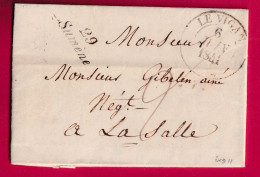 29
Sumène
LE VIGAN
6
JANV
1841
Monsieur
Monsieur Gibelin ainé
Négt.
a La Salle